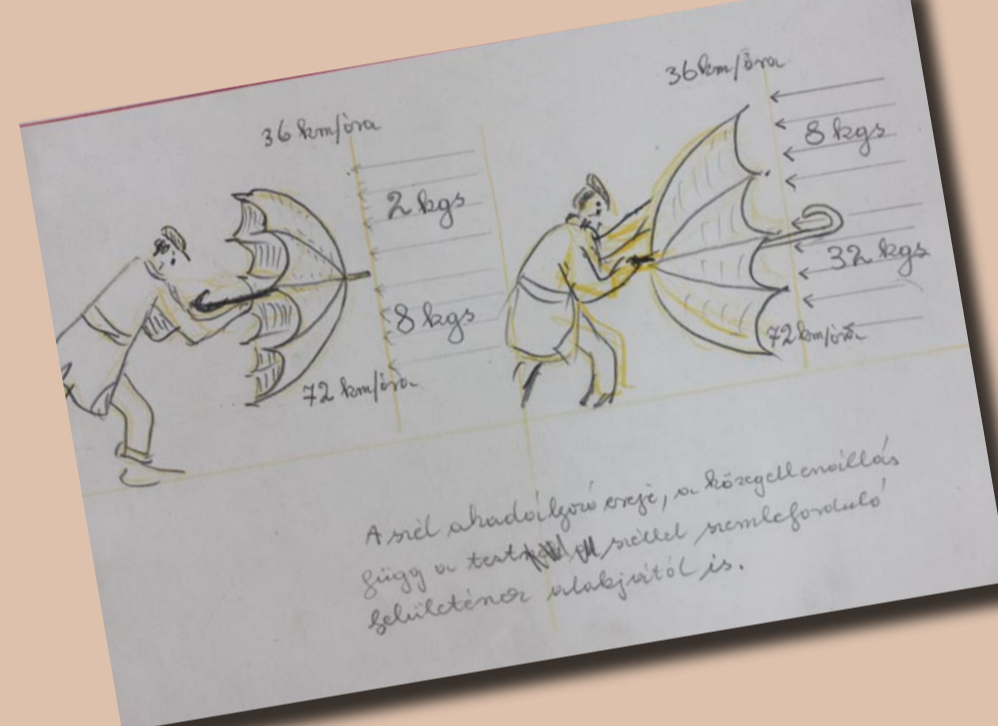 36 km/óra
2 kgs
8 kgs
72 km/óra
36 km/óra
8 kgs
32 kgs
72 km/óra
A szél akadályozó ereje, a közegellenállás
függ a test széllel szembeforduló
felületének alakjától is.